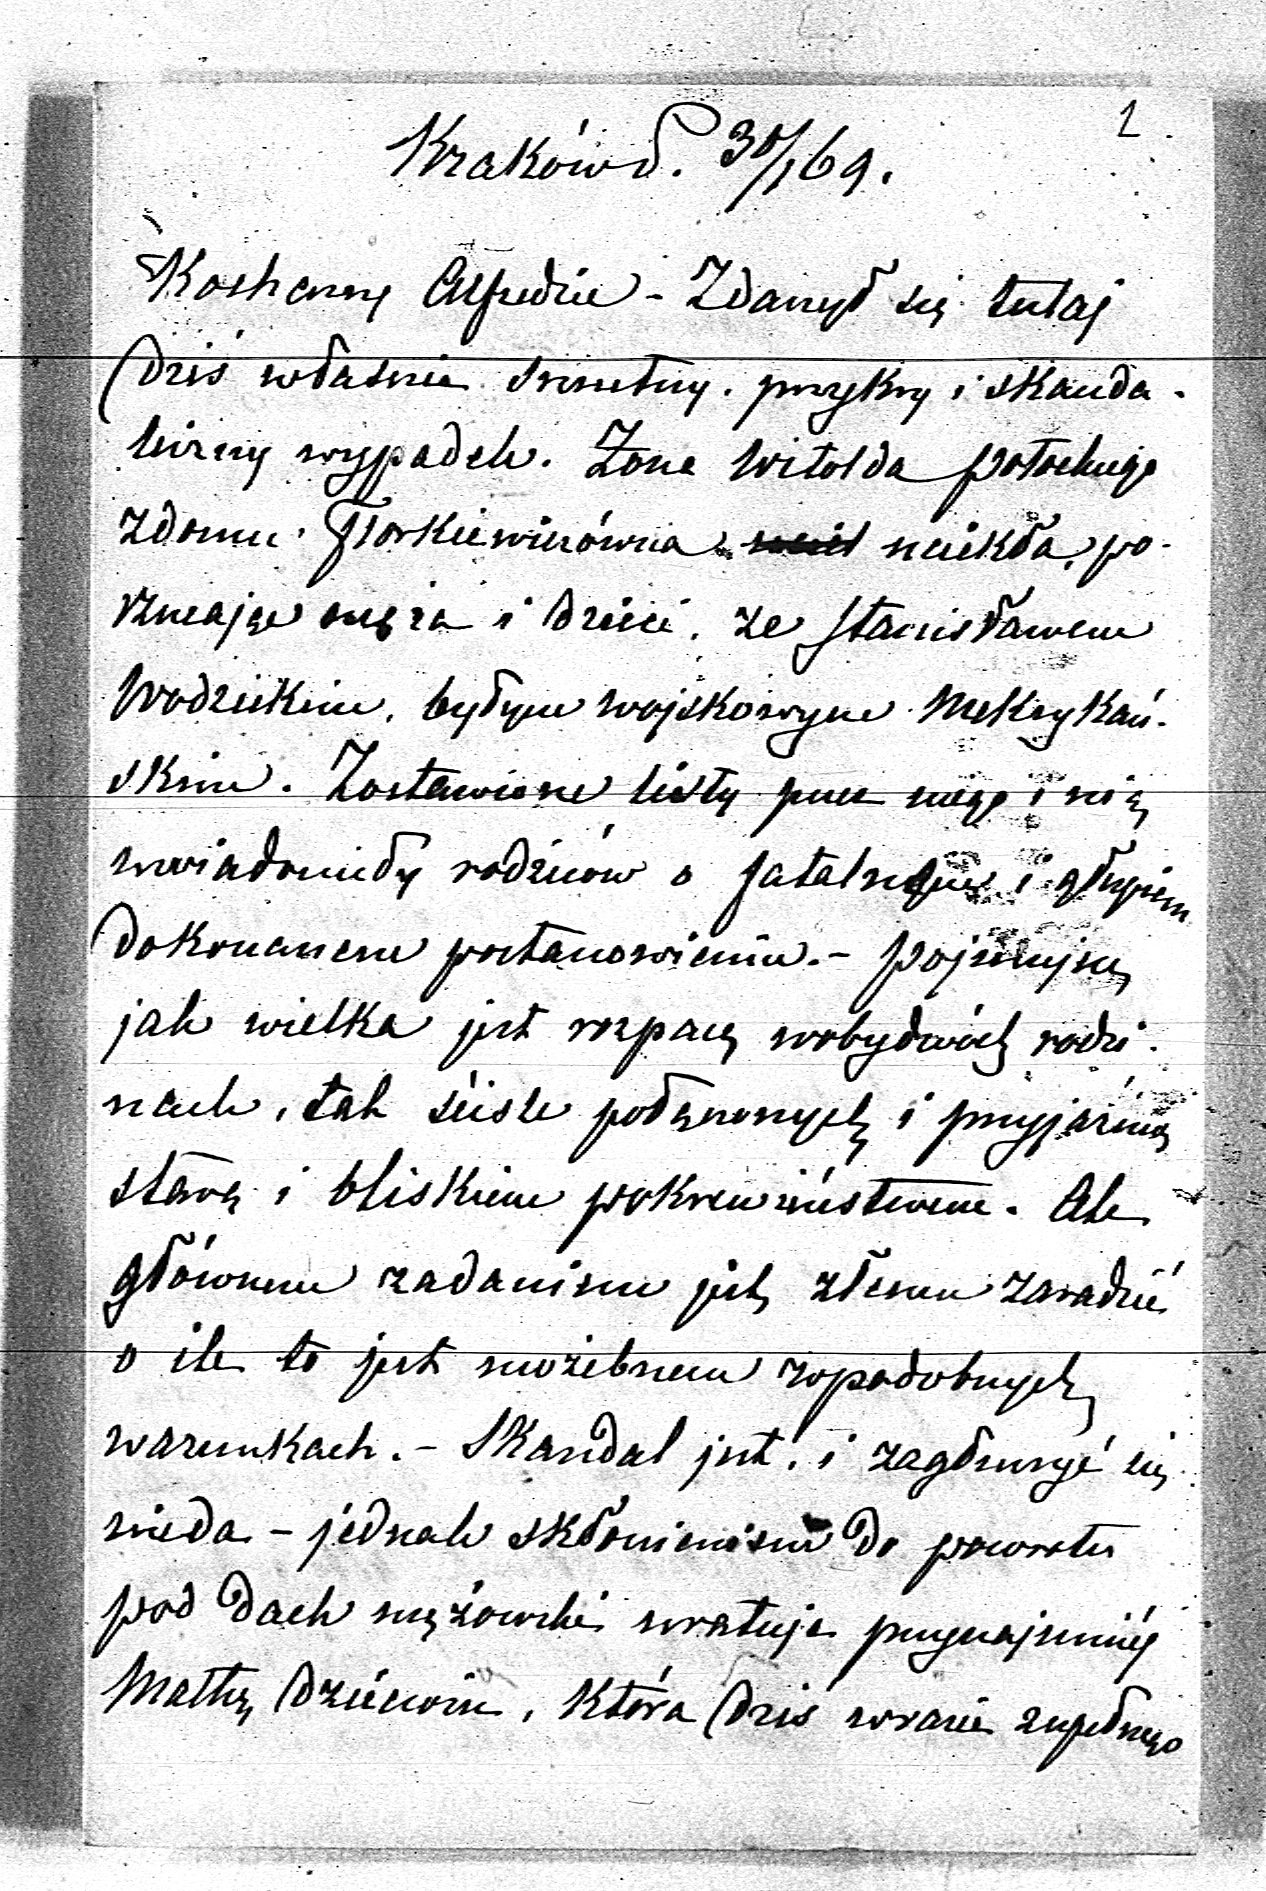 1
Kraków d. 30/1 69.
Kochany Alfredzie – Zdarzył się tutaj
dziś właśnie smutny, przykry i skanda-
liczny wypadek. Żona Witolda Potockiego
z domu Florkiewiczówna uciekła, po-
rzucając męża i dzieci, ze Stanisławem
Wodzickim, byłym wojskowym Meksykań-
skim. Zostawione listy przez niego i nią
uwiadomiły rodziców o fatalnym i głupiem
dokonanem postanowieniu. – Pojmujesz
jak wielka jest rozpacz w obydwóch rodzi-
nach, tak ściśle połączonych i przyjaźnią
starą i bliskiem pokrewieństwem. Ale
głównem zadaniem jest, złemu zaradzić
o ile to jest możebnem w podobnych
warunkach. – Skandal jest, i zagłuszyć się
nieda – jednak skłonieniem do powrotu
pod dach mężowski uratuje przynajmniéj
Matkę dzieciom, która dziś w razie zupełnego